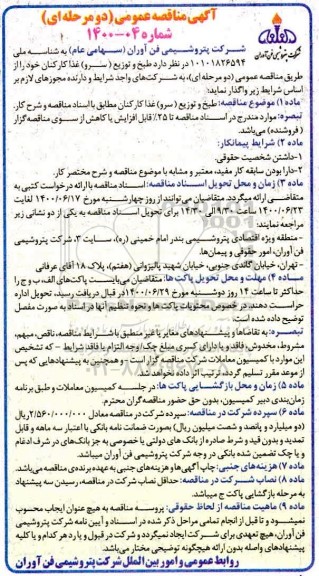 آگهی مناقصه عمومی (دو مرحله ای)
شماره ۰۴-۱۴۰۰
شرکت پتروشیمی فن آوران
شرکت پتروشیمی فن آوران (سهامی عام) به شناسه ملی
۱۰۱۰۱۸۲۶۵۹۴ در نظر دارد طبخ و توزیع (سرو) غذا کارکنان خود را از
طریق مناقصه عمومی (دو مرحله‌ای)، به شرکت‌های واجد شرایط و دارنده مجوزهای لازم بر
اساس شرایط زیر واگذار نماید:
ماده ۱) موضوع مناقصه: طبخ و توزیع (سرو) غذا کارکنان مطابق با اسناد مناقصه و شرح کار.
تبصره: موارد مندرج در اسناد مناقصه تا ۲۵٪ قابل افزایش یا کاهش از سوی مناقصه گزار
(فروشنده) می‌باشد.
ماده ۲) شرایط پیمانکار:
۱-داشتن شخصیت حقوقی.
۲-دارا بودن سابقه کار مفید، معتبر و مشابه با موضوع مناقصه و شرح مختصر کار.
ماده ۳) زمان و محل تحویل اسناد مناقصه: اسناد مناقصه با ارائه درخواست کتبی به
متقاضی ارائه میگردد. متقاضیان می‌توانند از روز چهارشنبه مورخ ۱۴۰۰/۰۶/۱۷ لغایت
۱۴۰۰/۰۶/۲۳ ساعت ۹:۳۰ الی ۱۴:۳۰ برای تحویل اسناد مناقصه به یکی از دو نشانی زیر
مراجعه نمایند:
- منطقه ویژه اقتصادی پتروشیمی بندر امام خمینی (ره)، سایت ۳، شرکت پتروشیمی
فن آوران، امور حقوقی و پیمان‌ها.
- تهران، خیابان گاندی جنوبی، خیابان شهید پالیزوانی (هفتم)، پلاک ۱۸ آقای عرفانی
ماده ۴) مهلت و محل تحویل پاکت ها: متقاضیان می‌بایست پاکت‌های الف، ب و ج را
حداکثر تا ساعت ۱۴ روز دوشنبه مورخ ۱۴۰۰/۰۶/۲۹ در قبال دریافت رسید، تحویل اداره
حراست دهند. در خصوص محتویات پاکت ها و نحوه تنظیم آنها در اسناد به صورت مفصل
توضیح داده شده است.
تبصره: به تقاضاها و پیشنهادهای مغایر یا غیر منطبق با شرایط مناقصه، ناقص، مبهم،
مشروط، مخدوش، فاقد و یا دارای کسری مبلغ چک/وجه التزام یا فاقد شرایط - که تشخیص
این موارد با کمیسیون معاملات شرکت مناقصه گزار است - و همچنین به پیشنهادهایی که پس
از موعد مقرر تسلیم گردد، ترتیب اثر داده نخواهد شد.
ماده ۵) زمان و محل بازگشایی پاکت ها: در جلسه کمیسیون معاملات و طبق برنامه
زمان‌بندی دبیر کمیسیون، بدون حق حضور مناقصه گران محترم.
ماده ۶) سپرده شرکت در مناقصه: سپرده شرکت در مناقصه معادل ۲/۵۶۰/۰۰۰/۰۰۰ ریال
(دو میلیارد و پانصد و شصت میلیون ریال) بصورت ضمانت نامه بانکی با اعتبار سه ماهه و قابل
تمدید و بدون قید و شرط صادره از بانک های دولتی یا خصوصی به جز بانک‌های در شرف ادغام
و یا چک تضمین شده بانکی در وجه شرکت پتروشیمی فن آوران میباشد.
ماده ۷) هزینه‌های جنبی: چاپ آگهی‌ها و هزینه‌های جنبی به عهده برنده‌ی مناقصه می‌باشد.
ماده ۸) نصاب شرکت در مناقصه: حداقل نصاب شرکت در مناقصه، رسیدن سه پیشنهاد
به مرحله بازگشایی پاکت ج میباشد.
ماده ۹) ماهیت مناقصه از لحاظ حقوقی: پروسه مناقصه به هیچ عنوان ایجاب محسوب
نمیشود و تا قبل از انجام تمامی مراحل ذکر شده در اسناد و آیین نامه شرکت پتروشیمی
فن آوران، هیچ تعهدی برای شرکت ایجاد نمیگردد و شرکت در قبول و یا رد هر کدام و یا کلیه
پیشنهادهای واصله بدون ارائه هیچگونه توضیحی مختار می‌باشد.
روابط عمومی و امور بین الملل شرکت پتروشیمی فن آوران